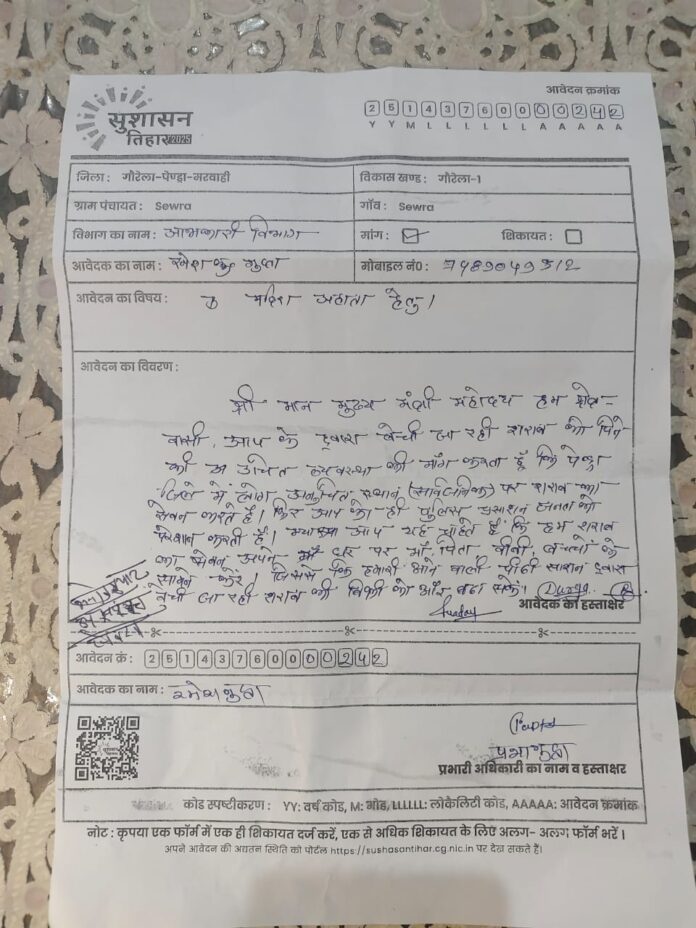 सुशासन
तिहार 2025
आवेदन क्रमांक
2 5 1 4 3 7 6 0 0 0 0 2 4 2
Y Y M L L L L L L A A A A A
जिला : गौरेला-पेण्ड्रा-मरवाही
विकास खण्ड : गौरेला-1
ग्राम पंचायत : Sewra
गाँव : Sewra
विभाग का नाम : आबकारी विभाग
मांग :
शिकायत :
आवेदक का नाम : रमेश गुप्ता
मोबाईल नं० :
आवेदन का विषय : मदिरा अहाता हेतु।
आवेदन का विवरण :
श्री मान मुख्य मंत्री महोदय हम क्षेत्र-
वासी, आप के द्वारा बेची जा रही शराब को पिने
की उचित व्यवस्था की माँग करता हूँ कि पेन्ड्रा
जिले में लोग अनुचित स्थान (सार्वजिनिक) पर शराब का
सेवन करते हैं। फिर आप की ही पुलिस प्रशासन जनता को
परेशान करती हैं। क्या आप यह चाहते हैं कि हम शराब
का सेवन अपने घर पर माँ, पिता बीवी, बच्चों के
सामने करे। जिससे हमारी आने वाली पीढ़ी शासन द्वारा
बेची जा रही शराब की बिक्री को और बढ़ा सकें।
आवेदक का हस्ताक्षर
आवेदन क्रं : 2 5 1 4 3 7 6 0 0 0 0 2 4 2
आवेदक का नाम : रमेश गुप्ता
प्रभारी अधिकारी का नाम व हस्ताक्षर
कोड स्पष्टीकरण : YY: वर्ष कोड, M: मोड, LLLLLL: लोकैलिटी कोड, AAAAA: आवेदन क्रमांक
नोट : कृपया एक फॉर्म में एक ही शिकायत दर्ज करें, एक से अधिक शिकायत के लिए अलग- अलग फॉर्म भरें ।
अपने आवेदन की अद्यतन स्थिति को पोर्टल https://sushasantihar.cg.nic.in पर देख सकते हैं।